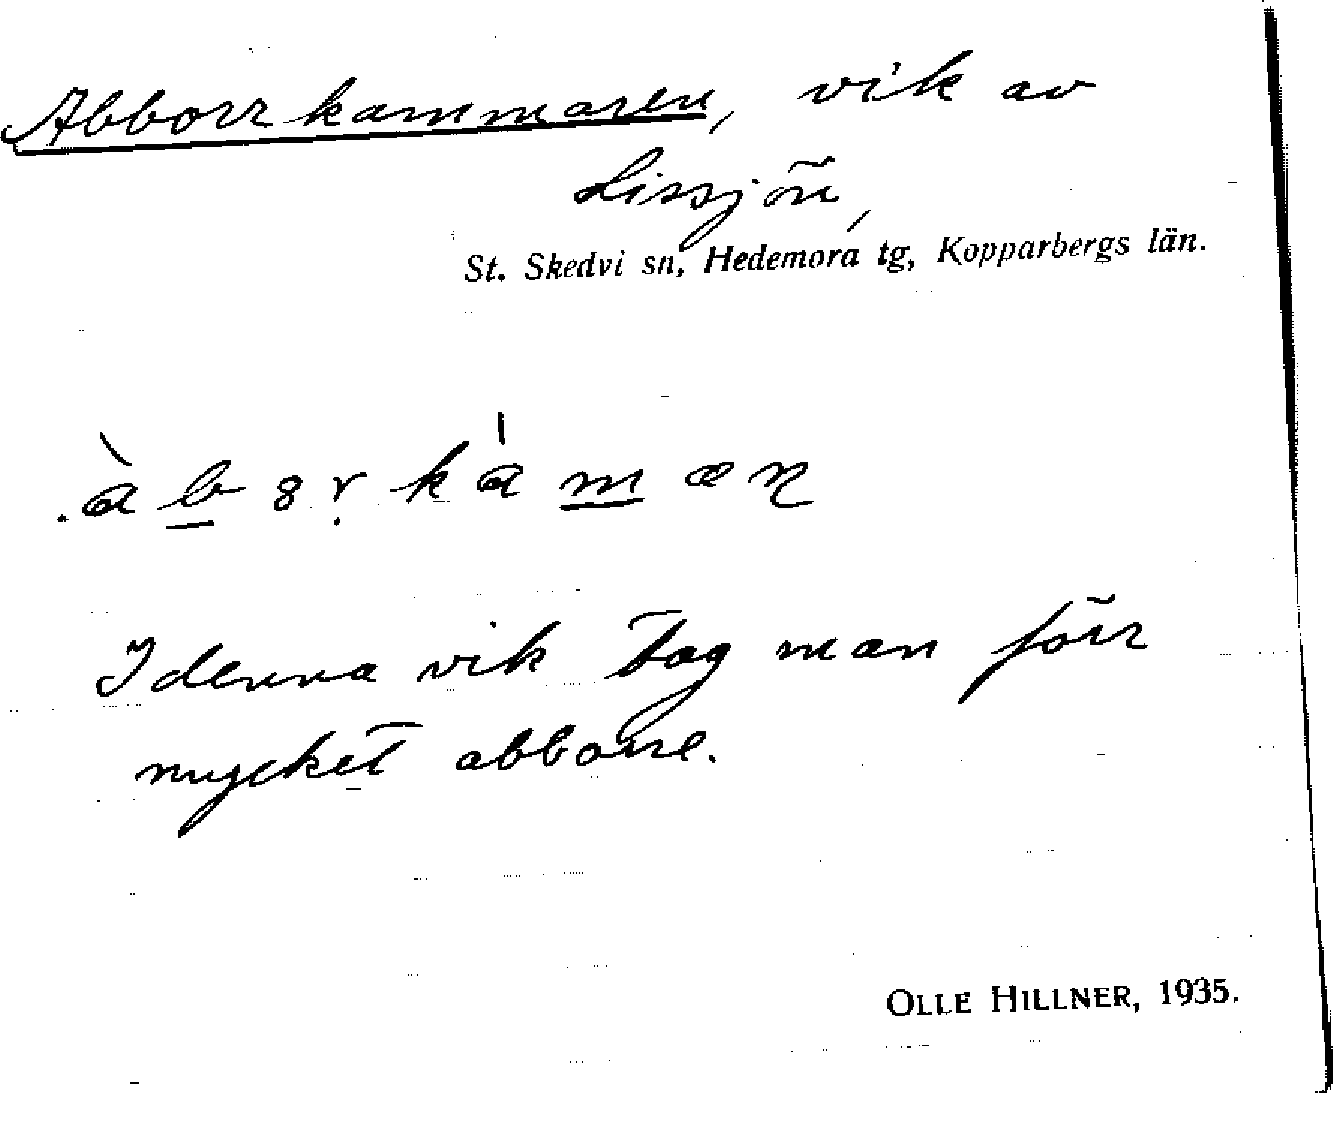 Abborrkammaren, vik av
Lissjön,
St. Skedvi sn, Hedemora tg, Kopparbergs län.
I denna vik tog man förr
mycket abborre.
OLLE HILLNER, 1935.